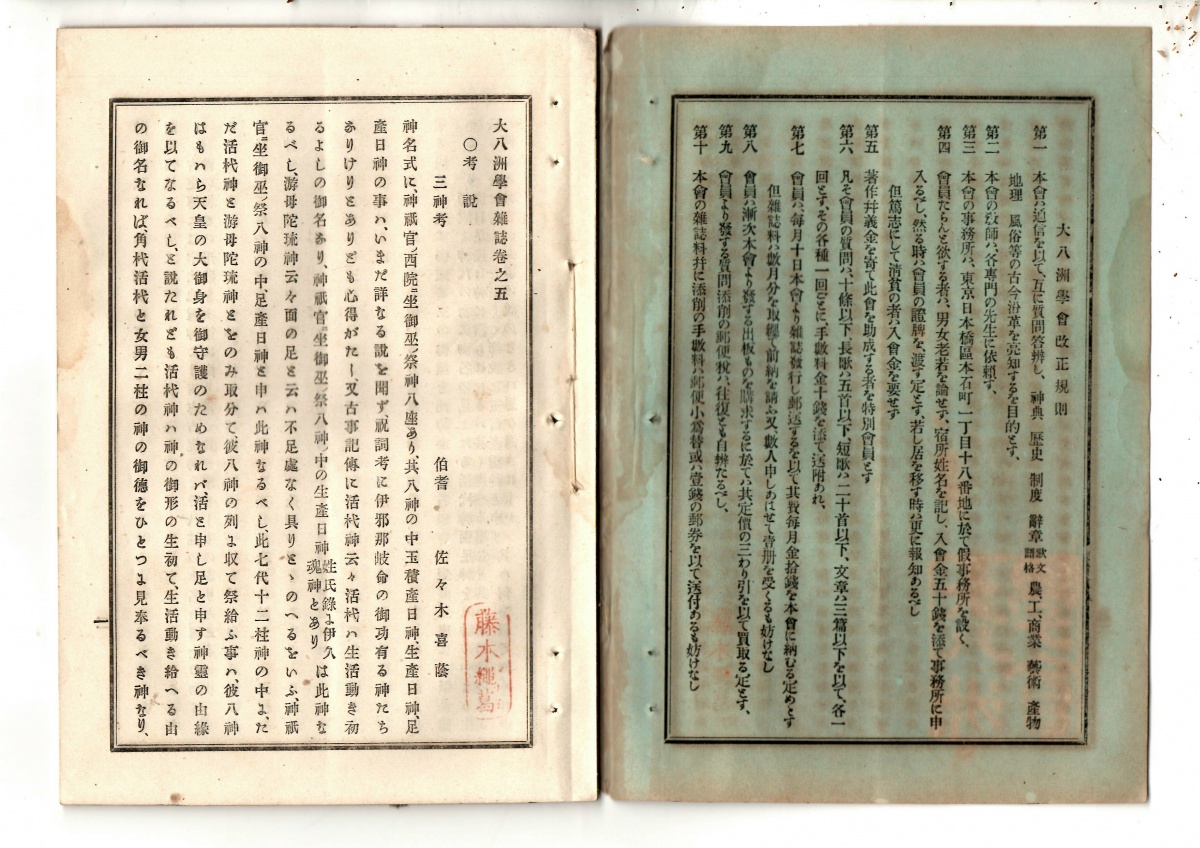 大八洲學會改正規則
第一　本會ハ通信を以て、互に質問答辨し、神典　歴史　制度　辭章歌文語格　農、工、商業　藝術　產物
地理　風俗等の古今沿革を亮知するを目的とす、
第二　本會の敎師ハ、各專門の先生に依賴す、
第三　本會の事務所ハ、東京日本橋區本石町一丁目十八番地に於て假事務所を設く、
第四　會員たらんと欲する者ハ、男女老若を論せず、宿所姓名を記し、入會金五十錢を添て事務所に申
入るべし、然る時ハ會員の證牌を渡す定とす、若し居を移す時ハ更に報知あるべし
但篤志にして清貧の者ハ入會金を要せず
第五　著作并義金を寄て此會を助成する者を特別會員とす
第六　凡そ會員の質問ハ、十條以下、長歌ハ五首以下、短歌ハ二十首以下、文章ハ三篇以下を以て、各一
回とす、その各種一回ごとに、手數料金十錢を添て送附あれ、
第七　會員ハ每月十日本會より雜誌發行し郵送するを以て其費每月金拾錢を本會に納むる定めとす
但雜誌料ハ數月分を取纒て前納を請ふ又、數人申しあはせて壹册を受くるも妨けなし
第八　會員ハ漸次本會より發する出板ものを購求するに於てハ其定價の三わり引を以て買取る定とす、
第九　會員より發する質問添削の郵便稅ハ、往復とも自辨たるべし、
第十　本會の雜誌料并に添削の手數料ハ郵便小爲替或ハ壹錢の郵券を以て送付あるも妨けなし
大八洲學會雜誌卷之五
〇考　說
三神考
伯耆　佐々木喜蔭
藤本
神名式に、神祇官西院坐御巫祭神八座あり、其八神の中玉積產日神、生產日神、足
產日神の事ハ、いまだ詳なる說を聞ず、祝詞考に伊邪那岐命の御功有る神たち
ありけりとあれども心得がたし又古事記傳に活杙神云々活杙ハ生活動き初
るよしの御名あり、神祇官坐御巫祭八神中の生產日神姓氏錄よ伊久魂神とありは此神な
るべし、游母陀琉神云々面の足と云ハ不足處なく具りとゝのへるをいふ神祇
官坐御巫祭八神の中、足產日神と申ハ此神なるべし、此七代十二柱神の中よ、た
だ活杙神と游母陀琉神とをのみ取分て彼八神の列よ收て祭給ふ事ハ、彼八神
はもハら天皇の大御身を御守護のためなれバ、活と申し足と申す神靈の由緣
を以てなるべし、と說たれども活杙神ハ神の御形の生初て、生活動き給へる由
の御名なれば、角杙活杙と女男二柱の神の御德をひとつよ見奉るべき神なり、